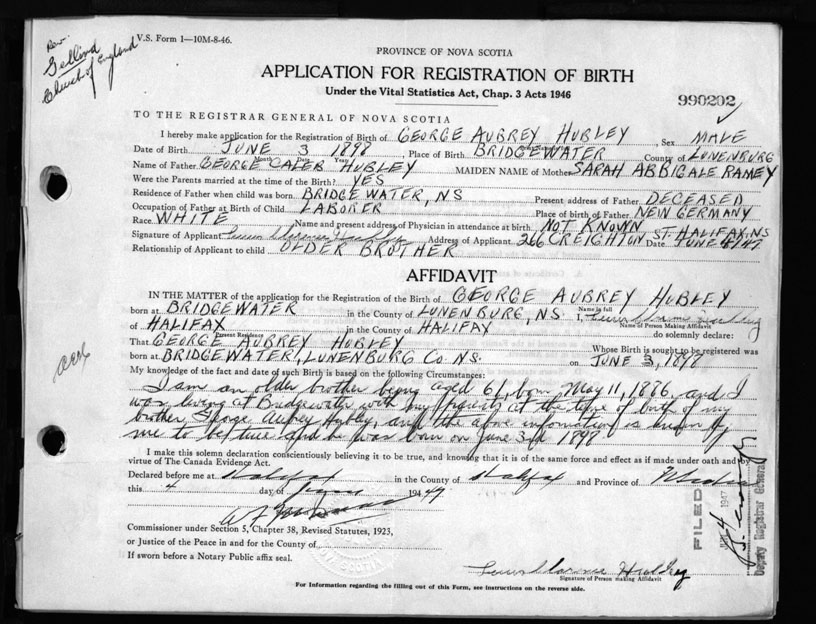 Rev.
Church of England
V.S. Form 1—10M-8-46.
PROVINCE OF NOVA SCOTIA
APPLICATION FOR REGISTRATION OF BIRTH
Under the Vital Statistics Act, Chap. 3 Acts 1946
990202
TO THE REGISTRAR GENERAL OF NOVA SCOTIA
I hereby make application for the Registration of Birth of GEORGE AUBREY HUBLEY, Sex MALE
Date of Birth JUNE 3 1898 Place of Birth BRIDGEWATER County of LUNENBURG
Month Date Year
Name of Father GEORGE CALEB HUBLEY MAIDEN NAME of Mother SARAH ABBIGALE RAMEY
Were the Parents married at the time of the Birth? YES
Residence of Father when child was born BRIDGEWATER, NS Present address of Father DECEASED
Occupation of Father at Birth of Child LABORER Place of birth of Father NEW GERMANY
Race WHITE Name and present address of Physician in attendance at birth NOT KNOWN
Signature of Applicant Hubley Address of Applicant 266 CREIGHTON ST. HALIFAX, NS Date JUNE 4/47
Relationship of Applicant to child OLDER BROTHER
AFFIDAVIT
IN THE MATTER of the application for the Registration of the Birth of GEORGE AUBREY HUBLEY
Name in full
born at BRIDGEWATER in the County of LUNENBURG, NS I, Hubley
Name of Person Making Affidavit
of HALIFAX in the County of HALIFAX do solemnly declare:
Present Residence
That GEORGE AUBREY HUBLEY Whose Birth is sought to be registered was
born at BRIDGEWATER, LUNENBURG CO. NS. on JUNE 3, 1898
My knowledge of the fact and date of such Birth is based on the following Circumstances:
I am an older brother being aged 61, born May 11, 1886 and I
was living at Bridgewater with my parents at the time of birth of my
brother, George Aubrey Hubley, and the above information is known by
me to be true and he was born on June 3rd 1898
I make this solemn declaration conscientiously believing it to be true, and knowing that it is of the same force and effect as if made under oath and by
virtue of The Canada Evidence Act.
Declared before me at Halifax in the County of Halifax and Province of N Scotia
this 4 day of June 1947
Commissioner under Section 5, Chapter 38, Revised Statutes, 1923,
or Justice of the Peace in and for the County of
If sworn before a Notary Public affix seal.
Hubley
Signature of Person making Affidavit
For Information regarding the filling out of this Form, see instructions on the reverse side.
FILED
4 1947
Deputy Registrar General